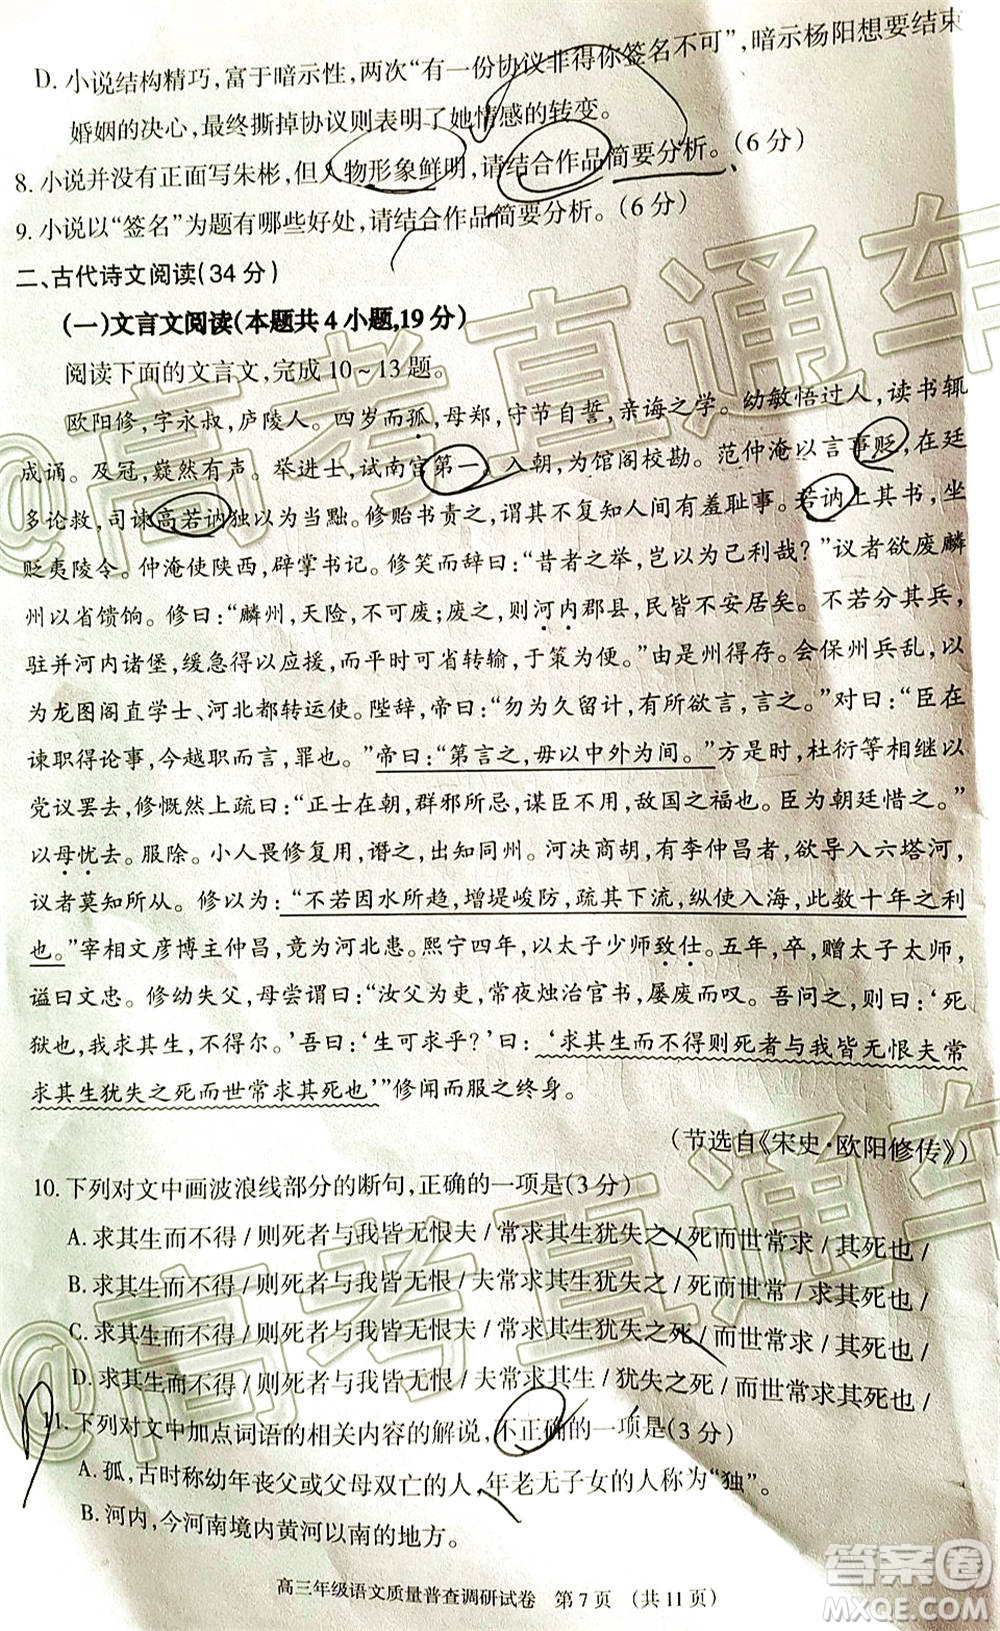 D. 小说结构精巧，富于暗示性，两次“有一份协议非得你签名不可”，暗示杨阳想要结束
婚姻的决心，最终撕掉协议则表明了她情感的转变。
8. 小说并没有正面写朱彬，但人物形象鲜明，请结合作品简要分析。（6 分）
9. 小说以“签名”为题有哪些好处，请结合作品简要分析。（6 分）
二、古代诗文阅读（34 分）
（一）文言文阅读（本题共 4 小题，19 分）
阅读下面的文言文，完成 10～13 题。
欧阳修，字永叔，庐陵人。四岁而孤，母郑，守节自誓，亲诲之学。幼敏悟过人，读书辄
成诵。及冠，嶷然有声。举进士，试南宫第一，入朝，为馆阁校勘。范仲淹以言事贬，在廷
多论救，司谏高若讷独以为当黜。修贻书责之，谓其不复知人间有羞耻事。若讷上其书，坐
贬夷陵令。仲淹使陕西，辟掌书记。修笑而辞曰：“昔者之举，岂以为己利哉？”议者欲废麟
州以省馈饷。修曰：“麟州，天险，不可废；废之，则河内郡县，民皆不安居矣。不若分其兵，
驻并河内诸堡，缓急得以应援，而平时可省转输，于策为便。”由是州得存。会保州兵乱，以
为龙图阁直学士、河北都转运使。陛辞，帝曰：“勿为久留计，有所欲言，言之。”对曰：“臣在
谏职得论事，今越职而言，罪也。”帝曰：“第言之，毋以中外为间。”方是时，杜衍等相继以
党议罢去，修慨然上疏曰：“正士在朝，群邪所忌，谋臣不用，敌国之福也。臣为朝廷惜之。”
以母忧去。服除。小人畏修复用，谮之，出知同州。河决商胡，有李仲昌者，欲导入六塔河，
议者莫知所从。修以为：“不若因水所趋，增堤峻防，疏其下流，纵使入海，此数十年之利
也。”宰相文彦博主仲昌，竟为河北患。熙宁四年，以太子少师致仕。五年，卒，赠太子太师，
谥曰文忠。修幼失父，母尝谓曰：“汝父为吏，常夜烛治官书，屡废而叹。吾问之，则曰：‘死
狱也，我求其生，不得尔。’吾曰：‘生可求乎？’曰：‘求其生而不得则死者与我皆无恨夫常
求其生犹失之死而世常求其死也’”修闻而服之终身。
（节选自《宋史·欧阳修传》）
10. 下列对文中画波浪线部分的断句，正确的一项是（3 分）
A. 求其生而不得 / 则死者与我皆无恨夫 / 常求其生犹失之 / 死而世常求 / 其死也 /
B. 求其生而不得 / 则死者与我皆无恨 / 夫常求其生犹失之 / 死而世常 / 求其死也 /
C. 求其生而不得 / 则死者与我皆无恨 / 夫常求其生犹失之死 / 而世常求其死也 /
D. 求其生而不得 / 则死者与我皆无恨夫 / 常求其生 / 犹失之死 / 而世常求其死也 /
11. 下列对文中加点词语的相关内容的解说，不正确的一项是（3 分）
A. 孤，古时称幼年丧父或父母双亡的人，年老无子女的人称为“独”。
B. 河内，今河南境内黄河以南的地方。
高三年级语文质量普查调研试卷 第 7 页 （共 11 页）
@高考直通车
@高考直通车
答案圈
MXQE.COM